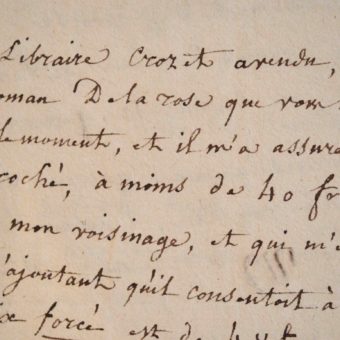 Libraire Crozet a vendu,
oman De la rose que vous
le moment, et il m'a assuré
coché, à moins de 40 fr
mon voisinage, et qui m'e
'ajoutant qu'il consentoit à
forcé est de